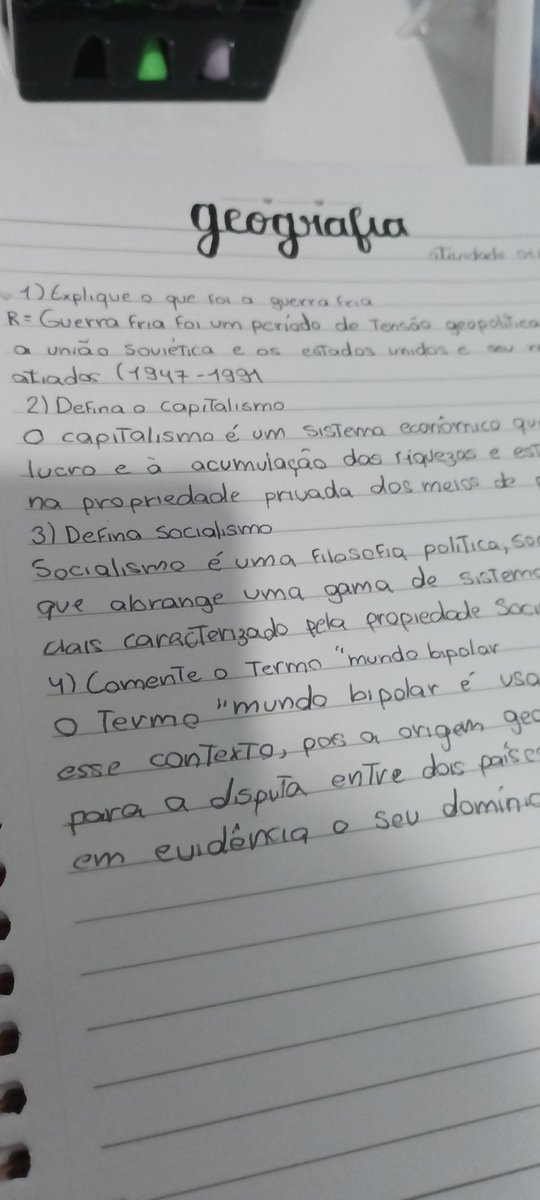 geografia
1) Explique o que foi a guerra fria
R= Guerra Fria foi um período de Tensão geopolítica
a união soviética e os estados unidos e seu
atiados (1947-1991
2) Defina o capitalismo
O capitalismo é um sistema econômico
lucro e à acumulação das riquezas e
na propriedade privada dos meios de
3) Defina socialismo
Socialismo é uma filosofia política,
que abrange uma gama de
ciais caracterizado pela propiedade
4) Comente o Termo "mundo bipolar
O Termo "mundo bipolar é
esse contexto, pois a origem
para a disputa entre dois
em evidência o seu